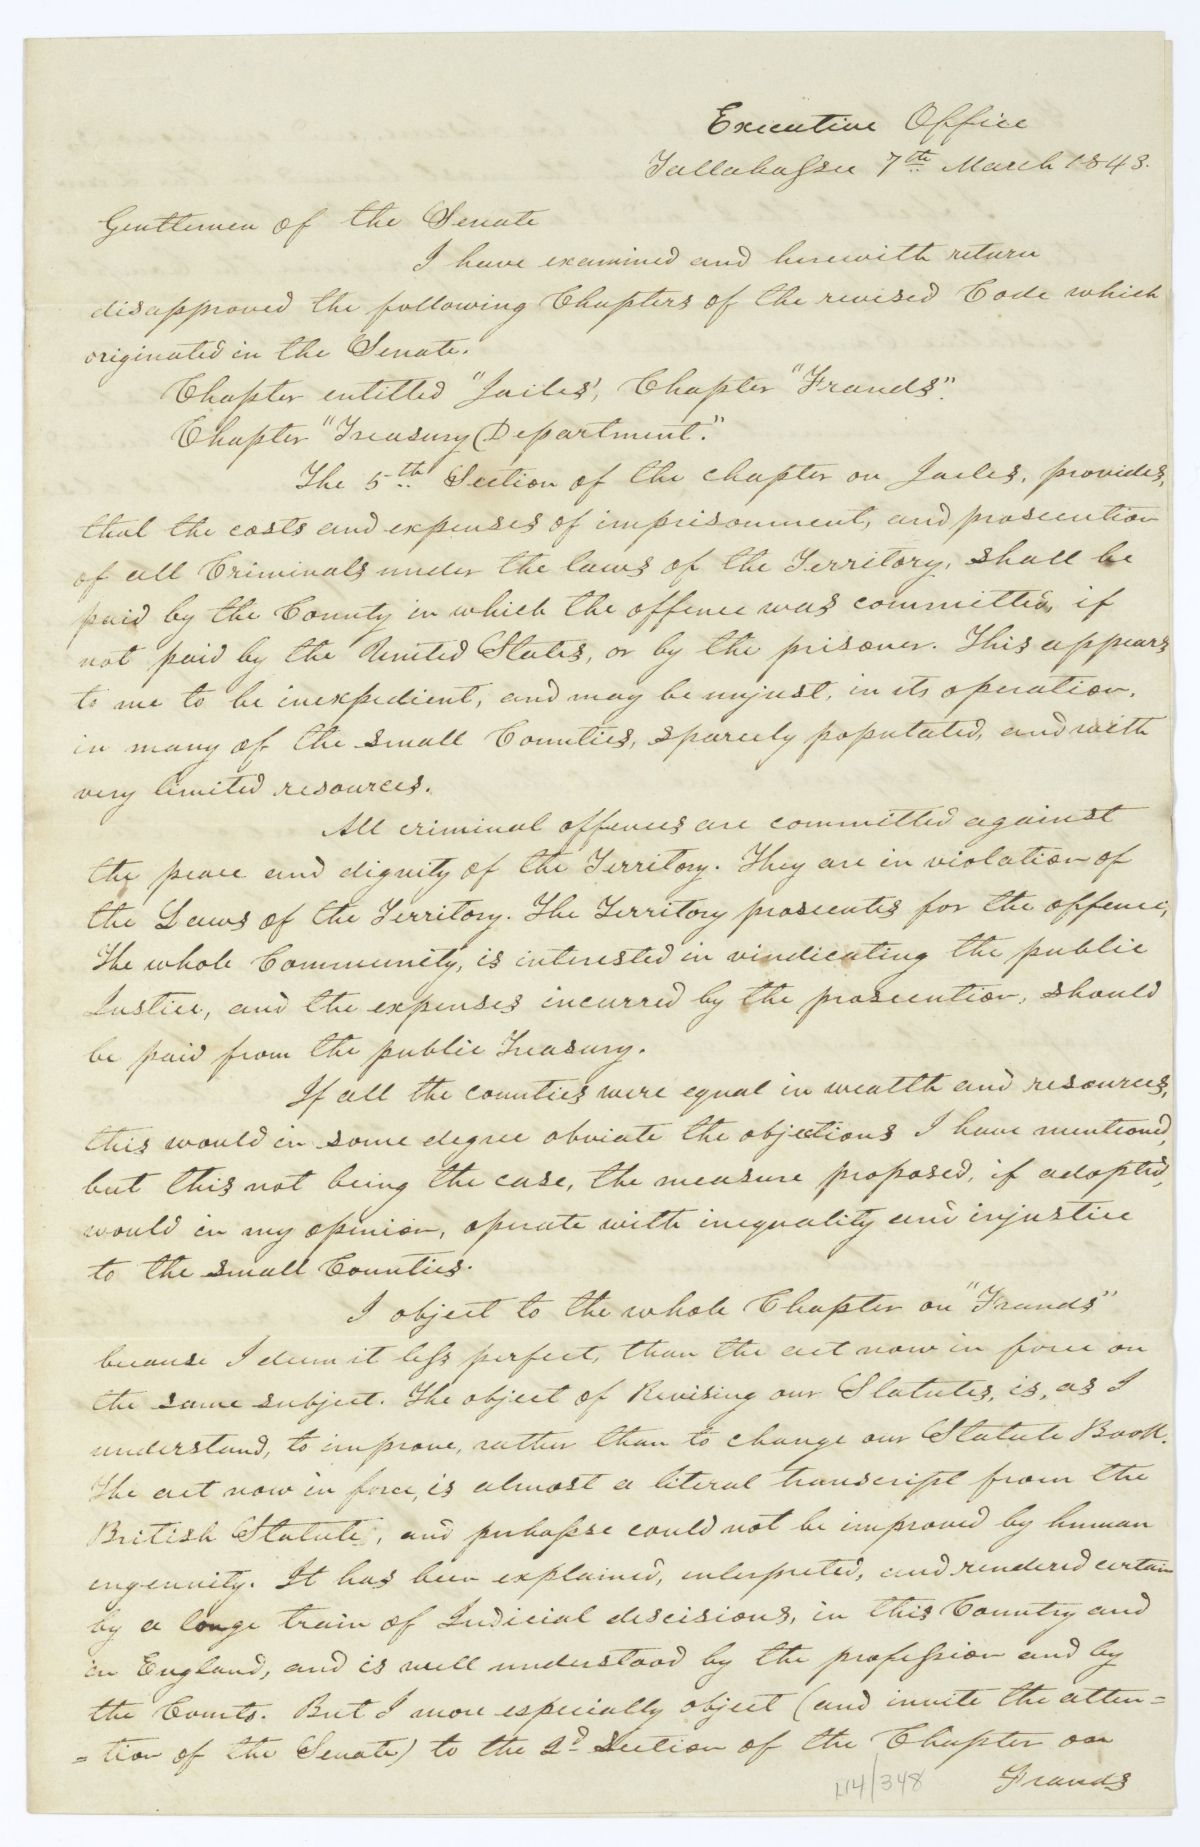 Executive Office
Tallahassee 7th March 1843.
Gentlemen of the Senate
I have examined and herewith return
disapproved the following Chapters of the revised Code which
originated in the Senate.
Chapter entitled "Jailes", Chapter "Frauds".
Chapter "Treasury Department."
The 5th Section of the chapter on Jailes, provides,
that the costs and expenses of imprisonment, and prosecution
of all Criminals under the laws of the Territory, shall be
paid by the County in which the offence was committed, if
not paid by the United States, or by the prisoner. This appears
to me to be inexpedient, and may be unjust, in its operation,
in many of the small Counties, sparcely populated, and with
very limited resources.
All criminal offences are committed against
the peace and dignity of the Territory. They are in violation of
the Laws of the Territory. The Territory prosecutes for the offence,
The whole Community, is interested in vindicating the public
Justice, and the expenses incurred by the prosecution, should
be paid from the public Treasury.
If all the counties were equal in wealth and resources,
this would in some degree obviate the objections I have mentioned,
but this not being the case, the measure proposed, if adopted,
would in my opinion, operate with inequality and injustice
to the small Counties.
I object to the whole Chapter on "Frauds"
because I deem it less perfect, than the act now in force on
the same subject. The object of Revising our Statutes, is, as I
understand, to improve, rather than to change our Statute Book.
The act now in force, is almost a literal transcript from the
British Statute, and perhapse could not be improved by human
engenuity. It has been explained, interpreted, and rendered certain
by a longe train of Judicial descisions, in this Country and
in England, and is well understood by the profession and by
the Courts. But I more especially object (and invite the atten=
=tion of the Senate) to the 2d Section of the Chapter on
Frauds
L14/348